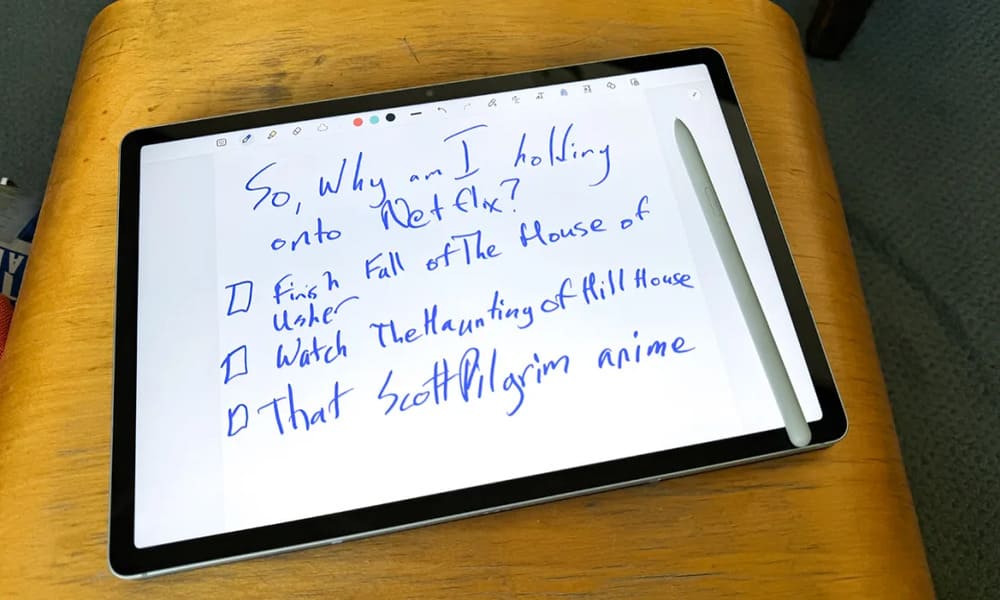 So, Why am I holding
onto Netflix?
Finish Fall of The House of
Usher
Watch The Haunting of Hill House
That Scott Pilgrim anime